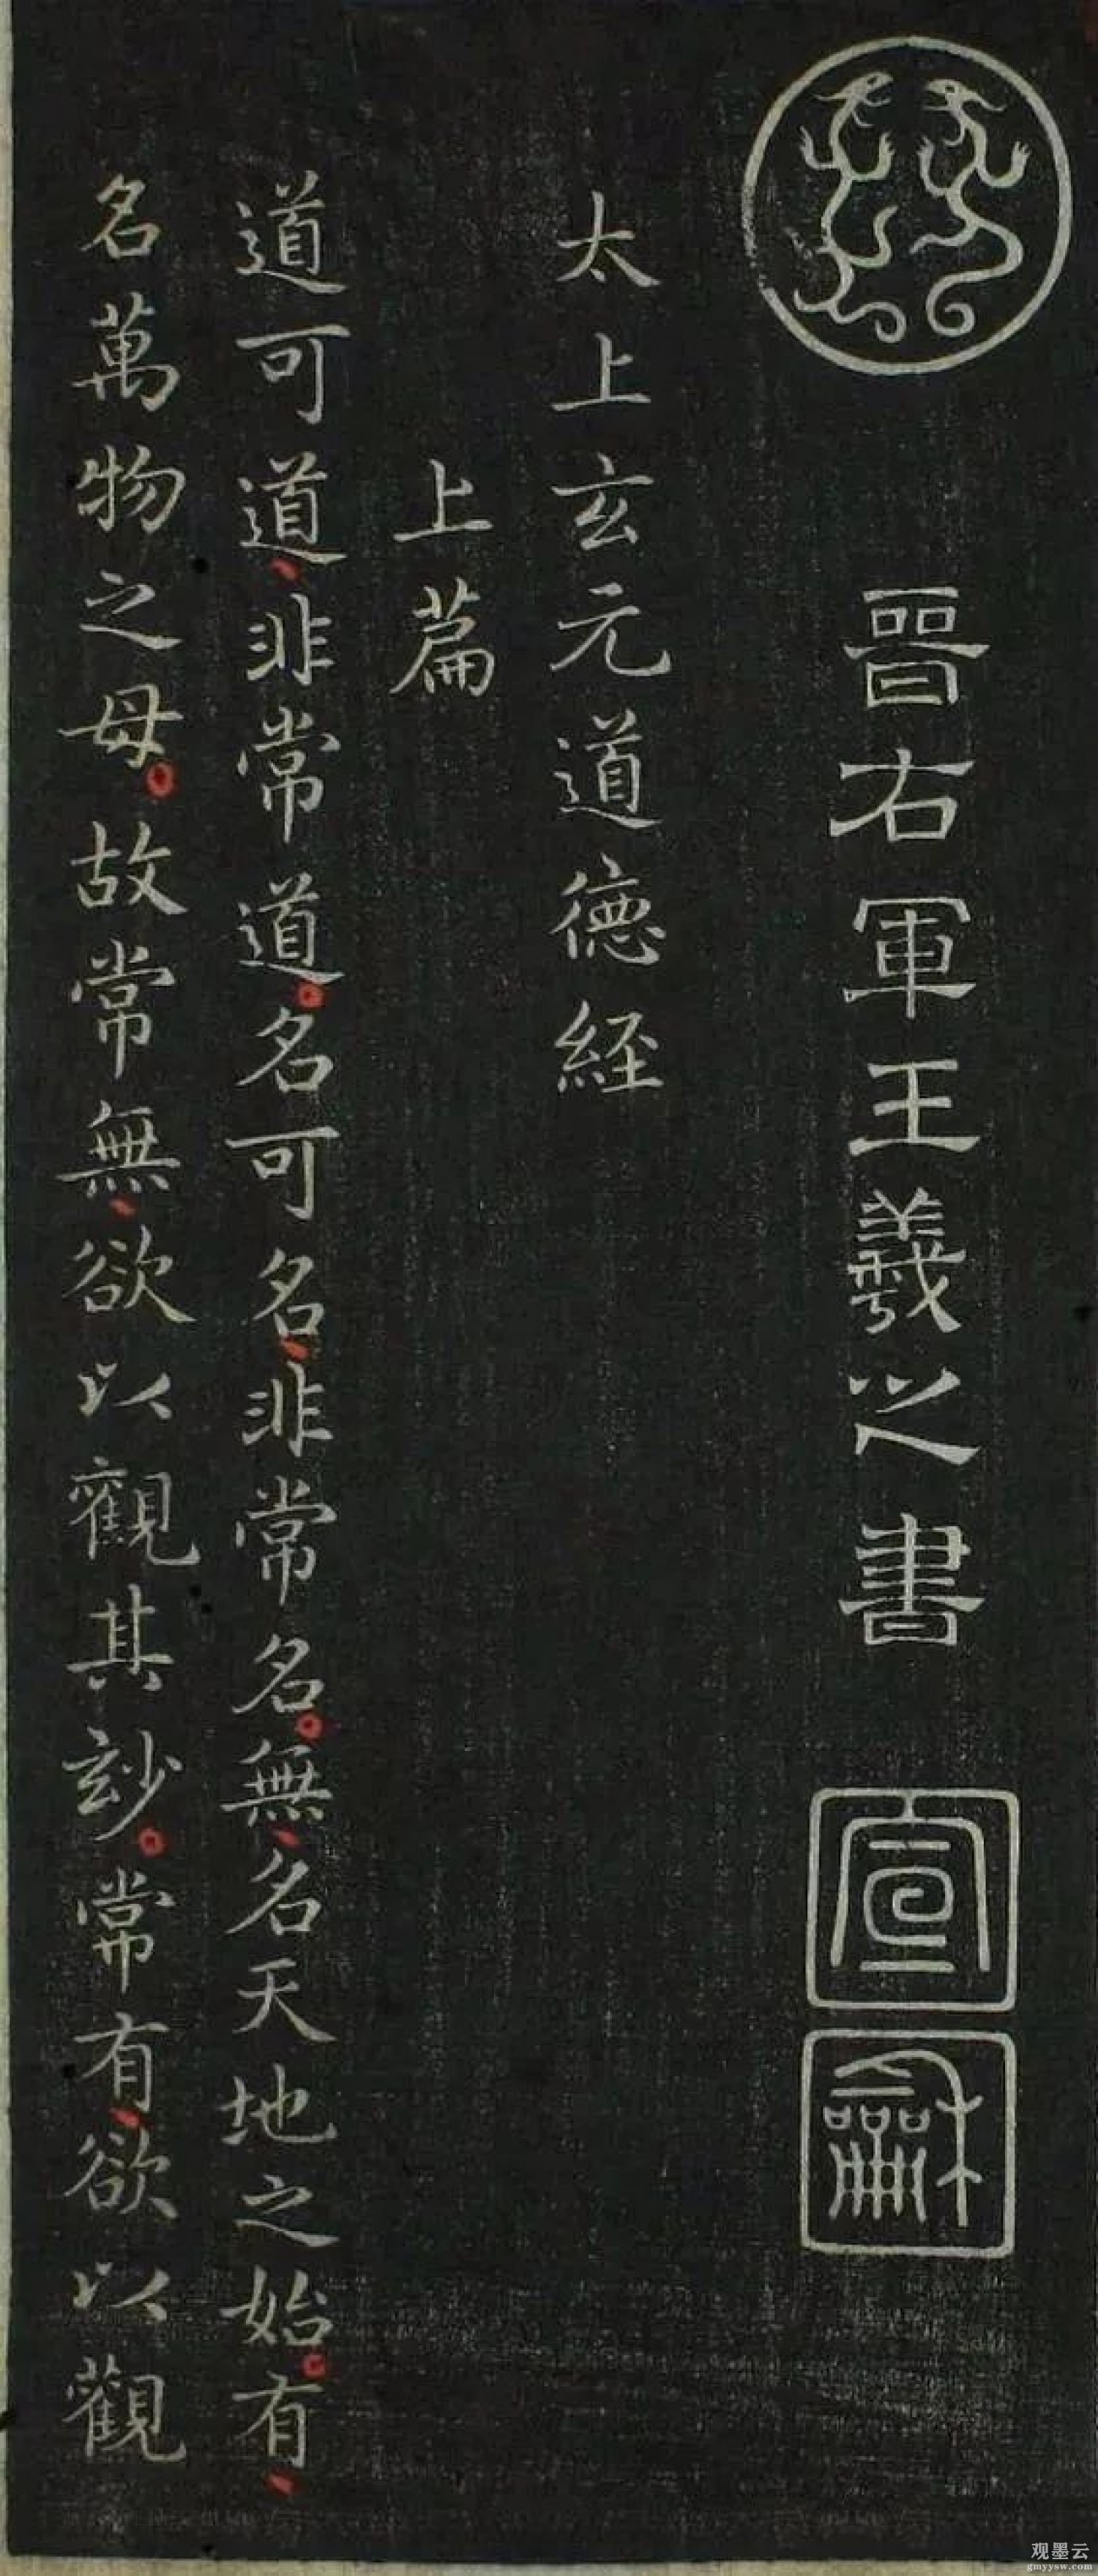 晉右軍王羲之書
宣
龢
太上玄元道德經
上篇
道可道、非常道。名可名、非常名。無、名天地之始。有、
名萬物之母。故常無、欲以觀其玅。常有、欲以觀
观墨云
gmyysw.com